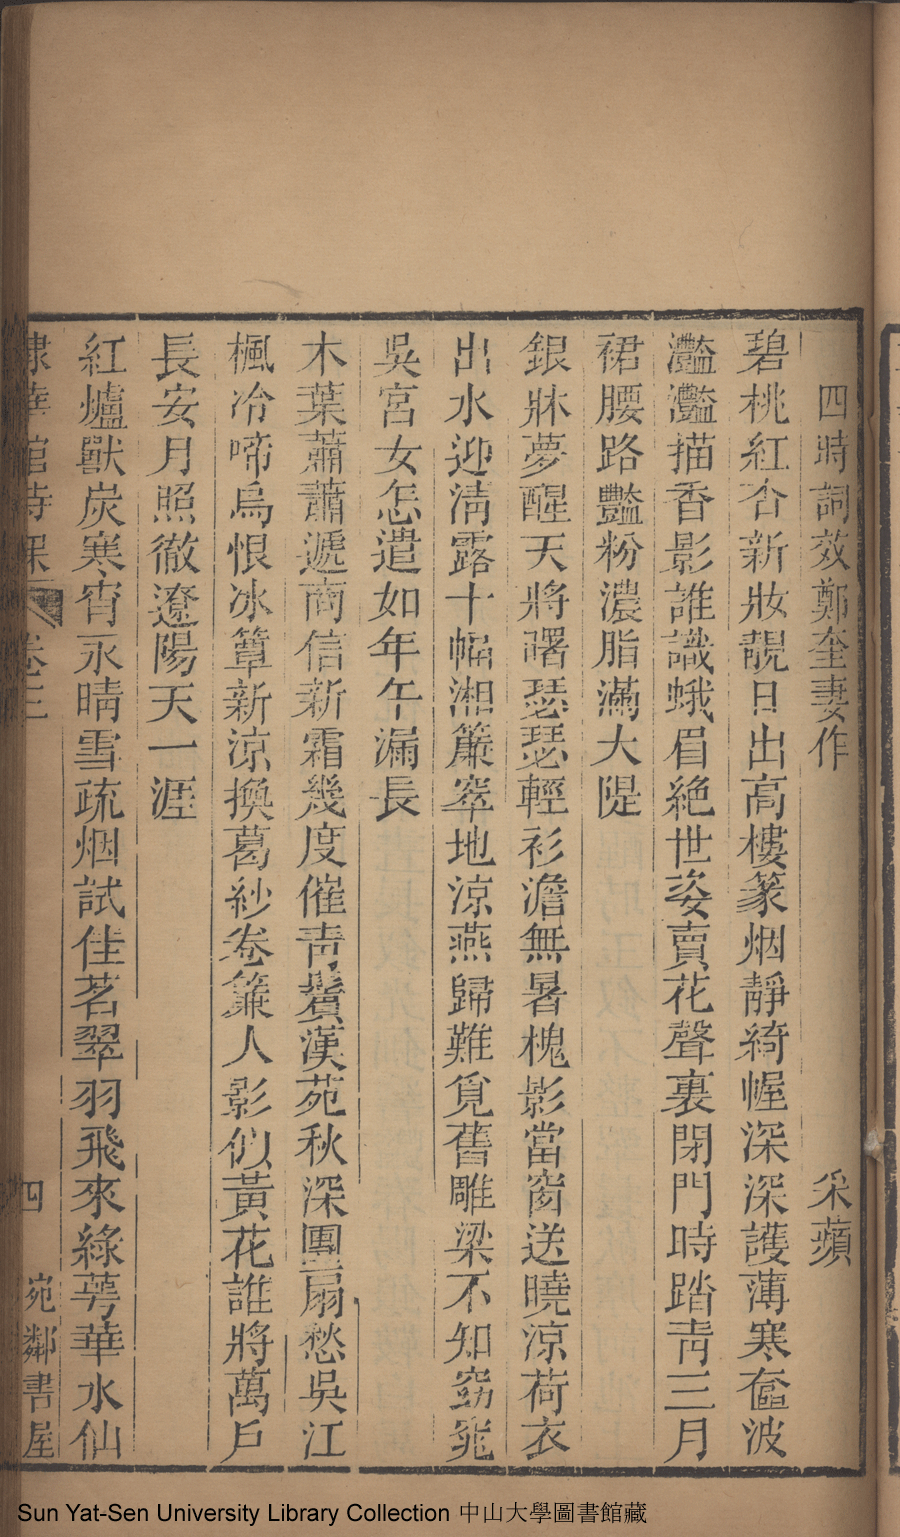 四時詞效鄭奎妻作 采蘋
碧桃紅杏新妝靚日出高樓篆烟靜綺幄深深護薄寒奩波
灩灩描香影誰識蛾眉絕世姿賣花聲裏閉門時踏靑三月
裙腰路豔粉濃脂滿大隄
銀牀夢醒天將曙瑟瑟輕衫澹無暑槐影當窗送曉涼荷衣
出水迎淸露十幅湘簾窣地涼燕歸難覓舊雕梁不知窈窕
吳宮女怎遣如年午漏長
木葉蕭蕭遞商信新霜幾度催靑鬢漢苑秋深團扇愁吳江
楓冷啼烏恨冰簟新涼換葛紗卷簾人影似黃花誰將萬戶
長安月照徹遼陽天一涯
紅爐獸炭寒宵永晴雪疏烟試佳茗翠羽飛來綠萼華水仙
棣華館詩課 卷三 四 宛鄰書屋
Sun Yat-Sen University Library Collection 中山大學圖書館藏